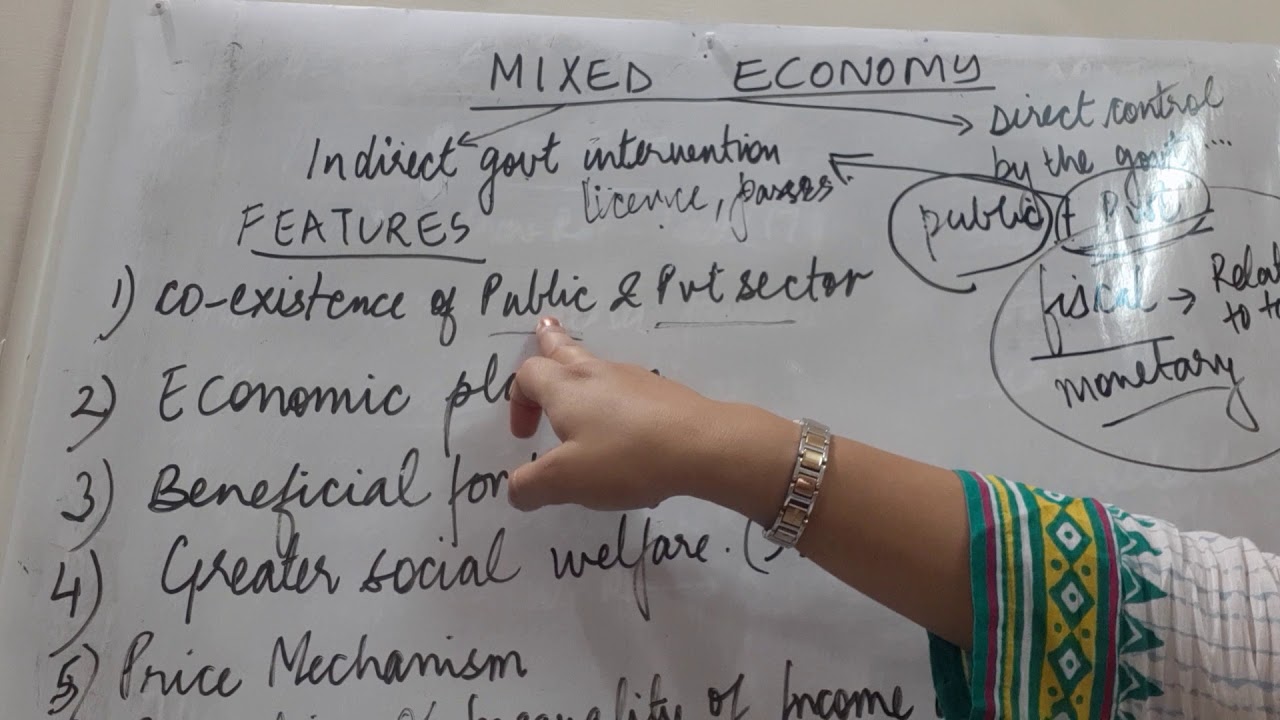 MIXED ECONOMY
Direct control
by the govt....
Indirect govt intervention
licence, passes.
public + Pvt
FEATURES
fiscal → Relat
to t
monetary
1) co-existence of Public & Pvt sector
2) Economic pl
3) Beneficial for
4) Greater social welfare. (
5) Price Mechanism
Inequality of Income